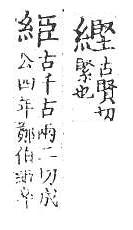 古賢切
緊也
古千古兩二切成
公四年鄭伯卒